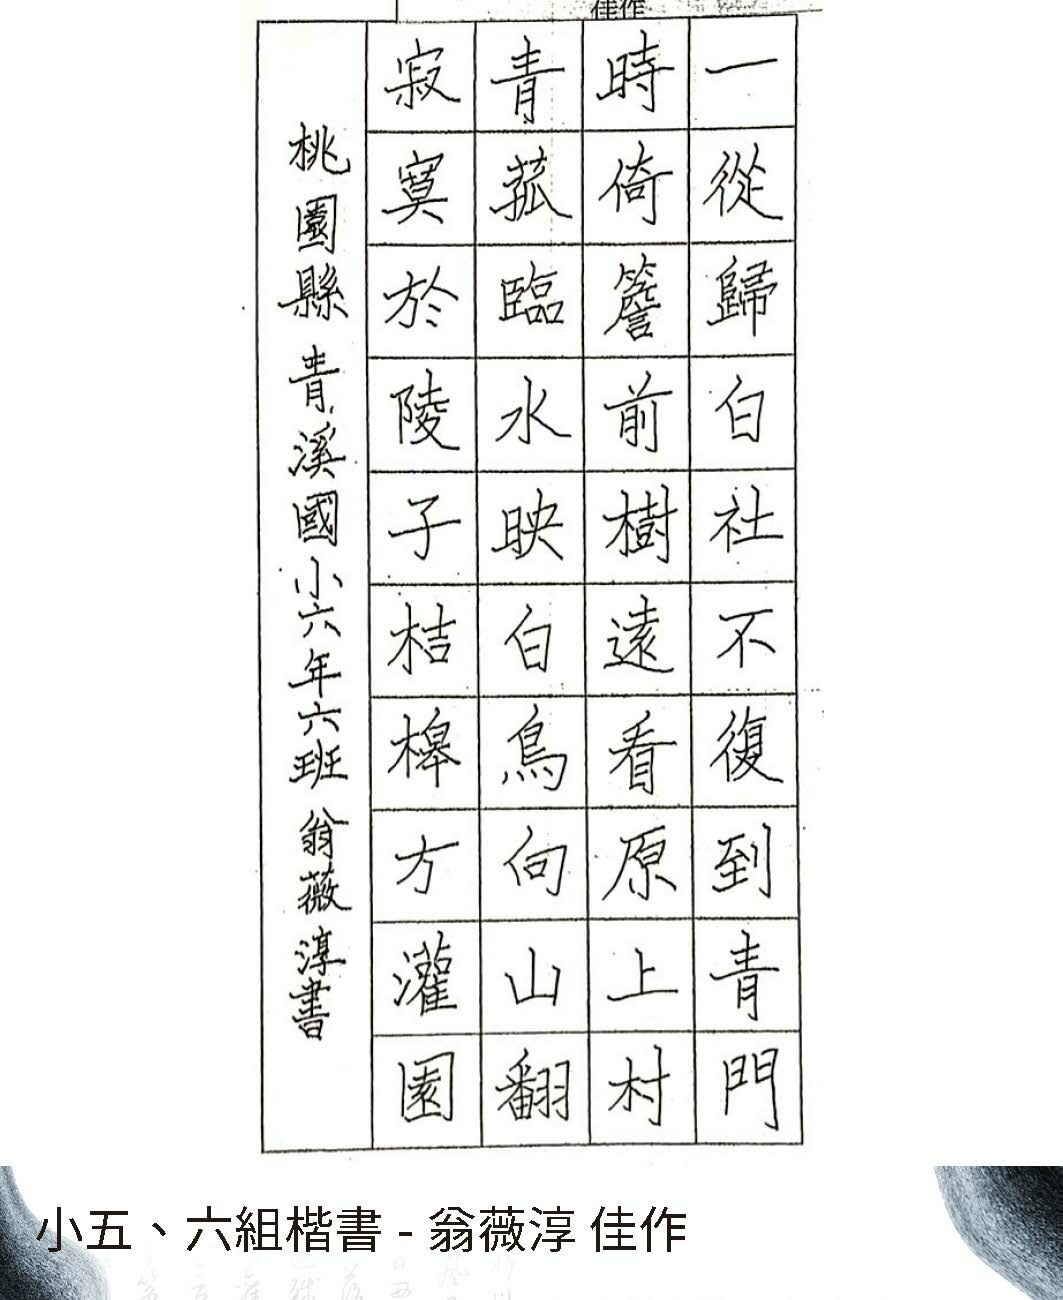 佳作
一從歸白社不復到青門
時倚簷前樹遠看原上村
青菰臨水映白鳥向山翻
寂寞於陵子桔槔方灌園
桃園縣青溪國小六年六班翁薇淳書
小五、六組楷書 - 翁薇淳 佳作